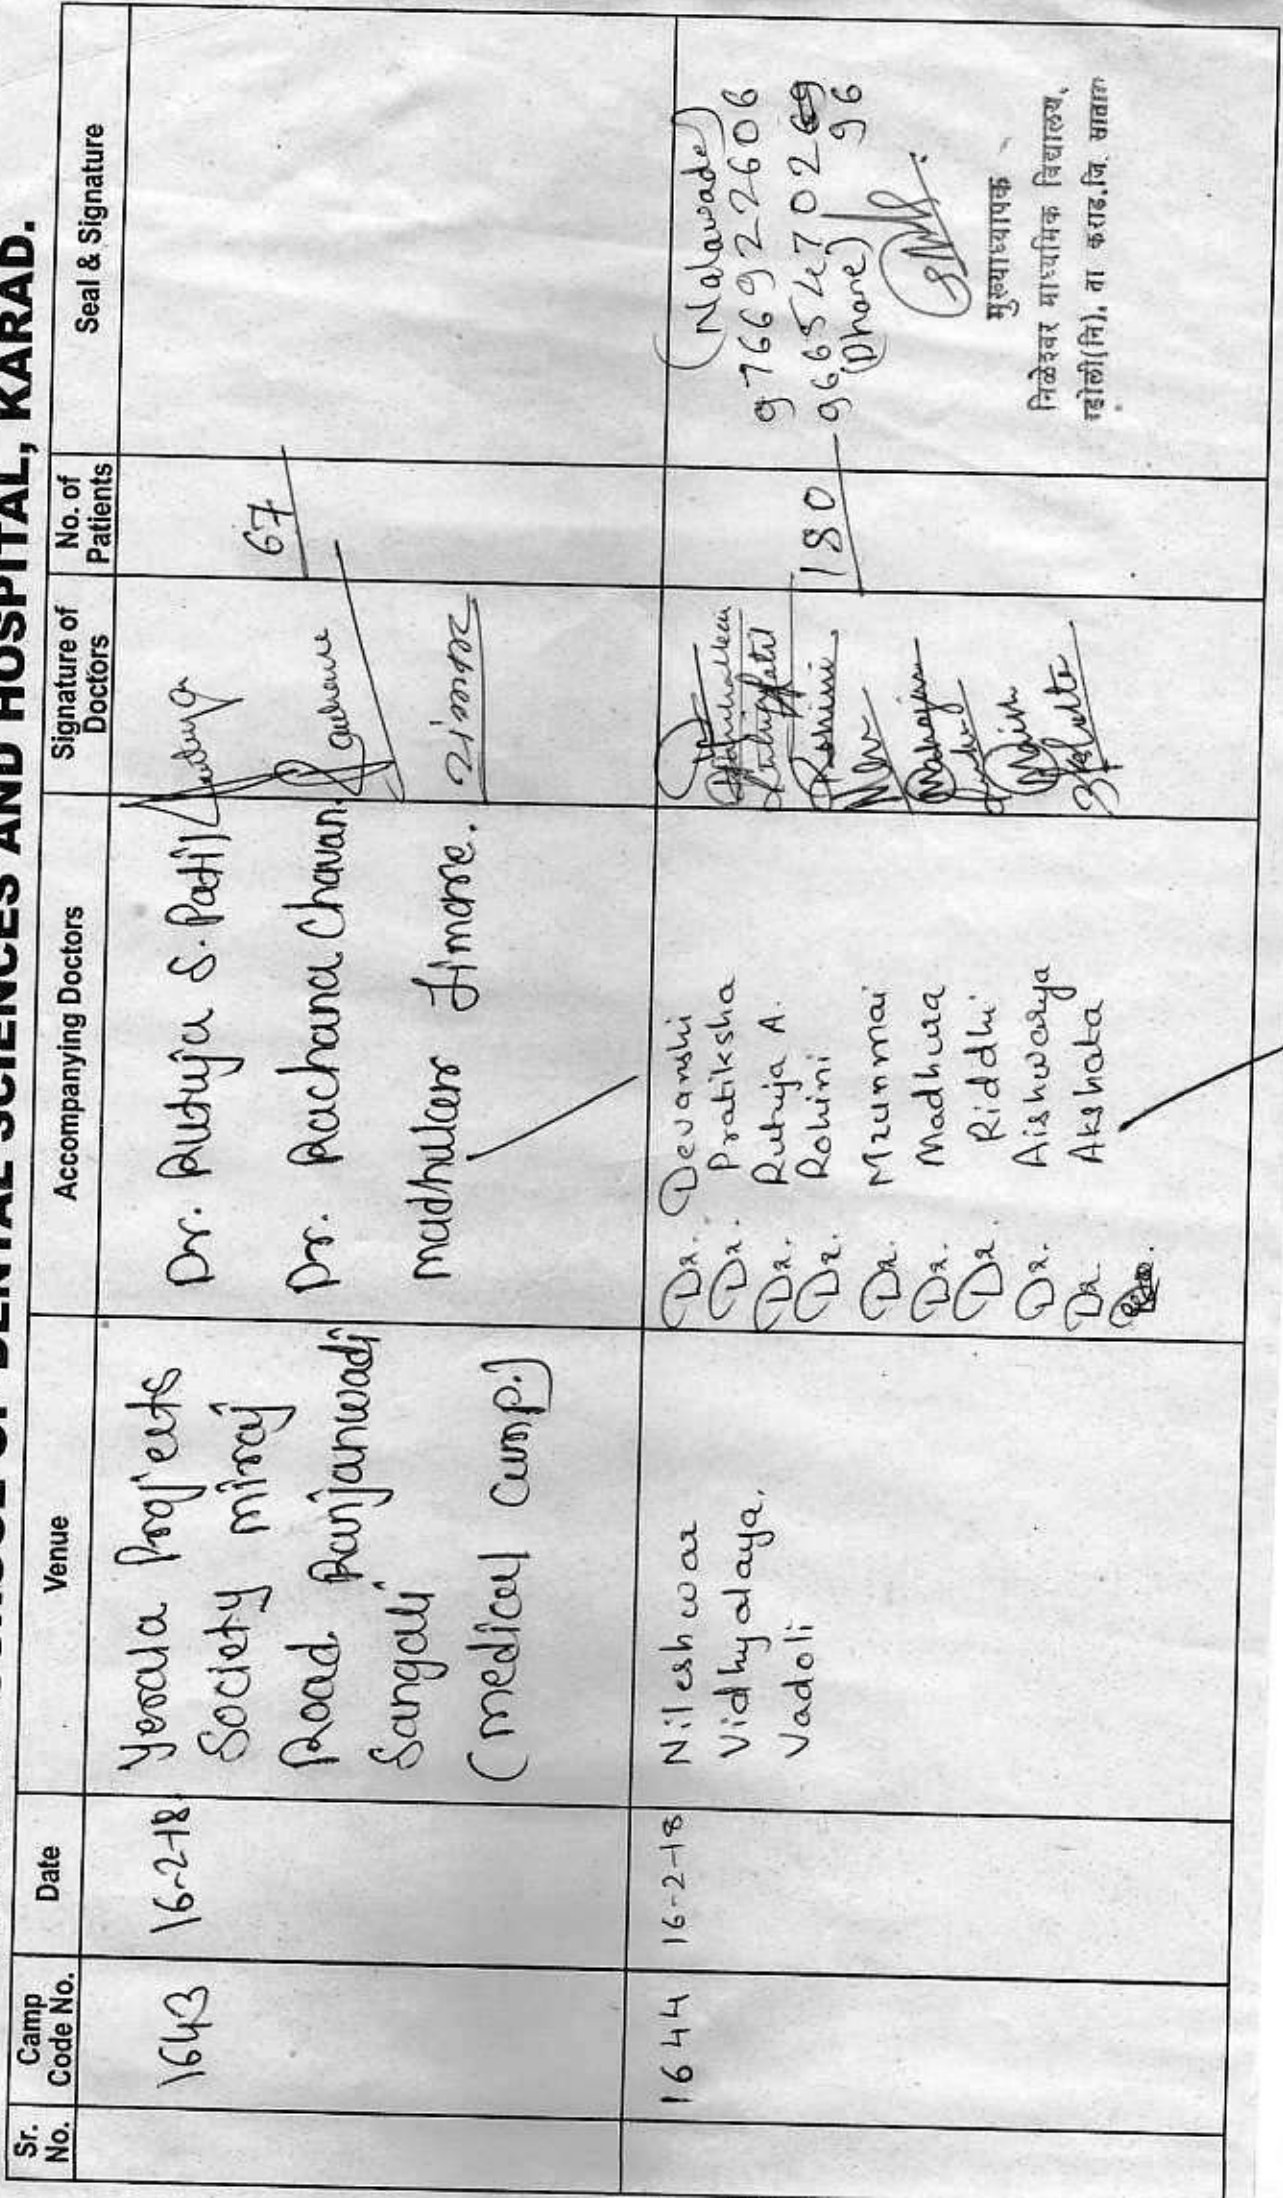 OF DENTAL SCIENCES AND HOSPITAL, KARAD.
Sr. No.
Camp Code No.
Date
Venue
Accompanying Doctors
Signature of Doctors
No. of Patients
Seal & Signature
1643
16-2-18
Yerala Projects
Society miraj
Road Ranjanwadi
Sangali
(medical Camp.)
Dr. Rutuja S. Patil
Dr. Rachana Chavan
Madhukar Limare.
67
1644
16-2-18
Nileshwar
Vidhyalaya,
Vadoli
Dr. Devanshi
Dr. Pratiksha
Dr. Rutuja A.
Dr. Rohini
Dr. Mrunmai
Dr. Madhura
Dr. Riddhi
Dr. Aishwarya
Dr. Akshata
Rohini
Mahajan
180
(Nalawade)
9766922606
96654702
96
(Dhane)
मुख्याध्यापक
निळेश्वर माध्यमिक विद्यालय,
वडोली(नि), ता कराड.जि. सातारा